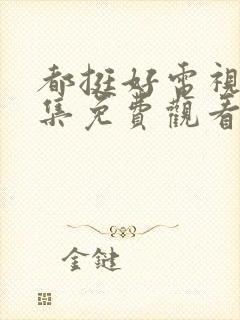 都挺好電視
集免費觀看
金鍵